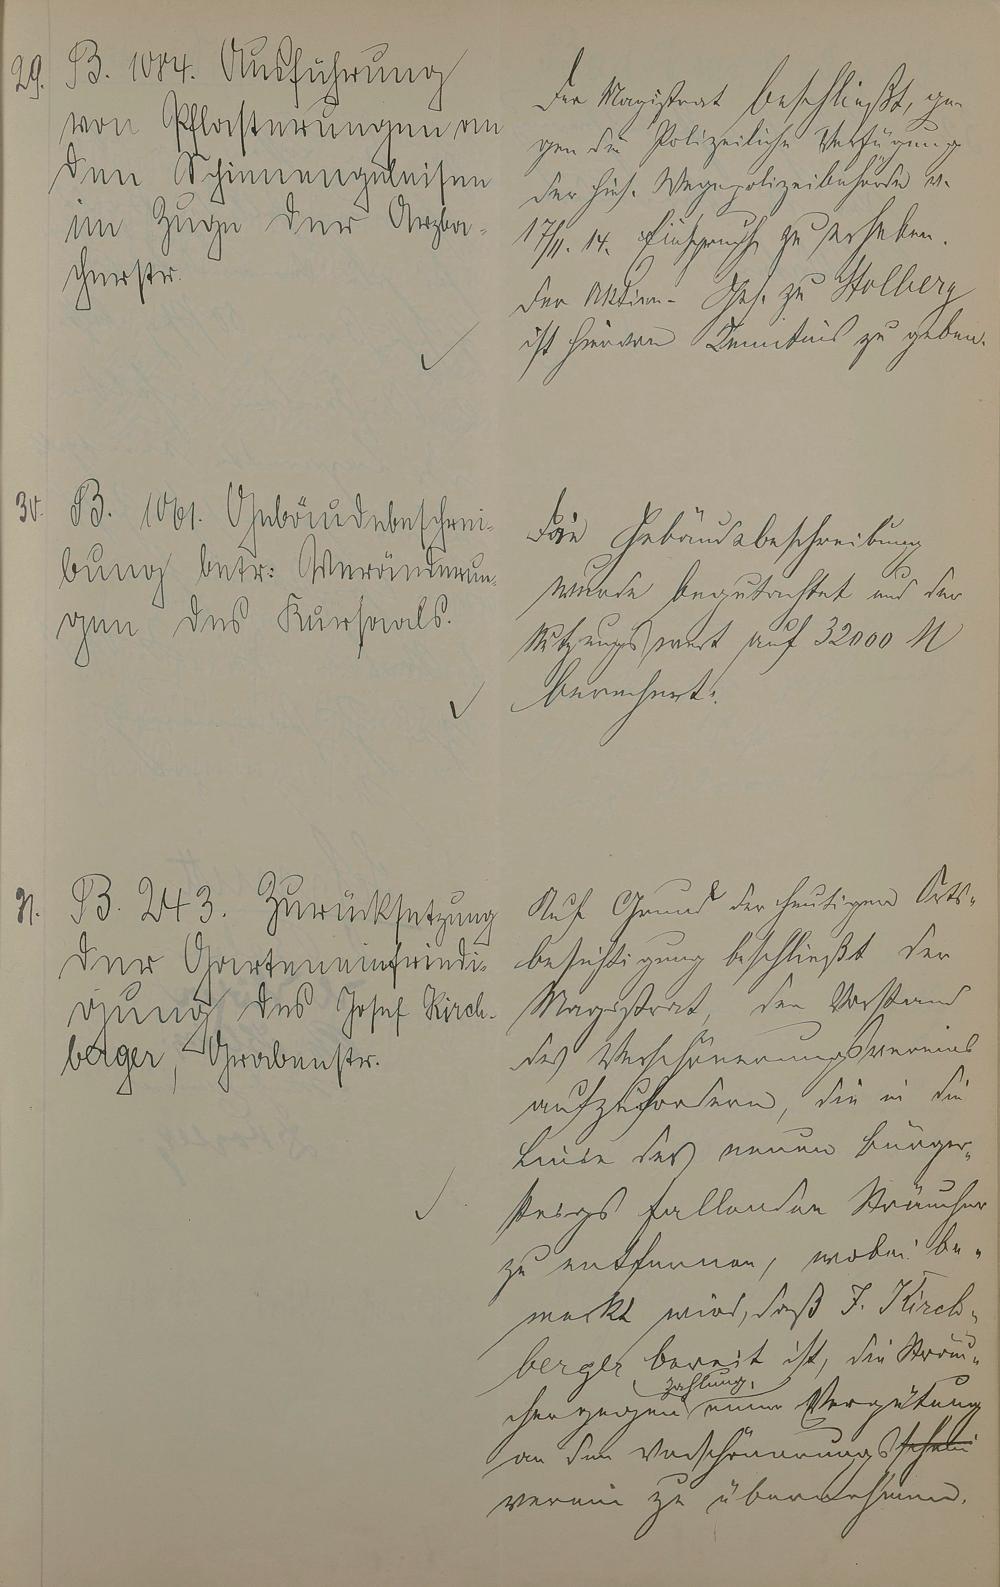 29. B. 1084. Ausführung
von Pflasterungen an
den Schienengeleisen
im Zuge der Arzba-
cherstr.
Der Magistrat beschließt, ge-
gen die Polizeiliche Verfügung
der hies. Wegepolizeibehörde v.
17/11. 14. Einspruch zu erheben.
Der Aktien- Ges. zu Stolberg
ist hiervon Kenntnis zu geben.
30. B. 1061. Gebäudebeschrei-
bung betr: Veränderun-
gen des Kursaals.
Die Gebäudebeschreibung
wurde begutachtet und der
Nutzungswert auf 32000 M
berechnet.
31. B. 243. Zurücksetzung
der Garteneinfriedi-
gung des Josef Kirch-
berger, Grabenstr.
Auf Grund der heutigen Orts-
besichtigung beschließt der
Magistrat, den Vorstand
des Verschönerungsvereins
aufzufordern, die in die
Linie des neuen Bürger-
steigs fallenden Sträucher
zu entfernen, wobei be-
merkt wird, daß J. Kirch-
berger bereit ist, die Sträu-
zahlung
cher gegen einer Vergütung
an den Verschönerungs
verein zu übernehmen.